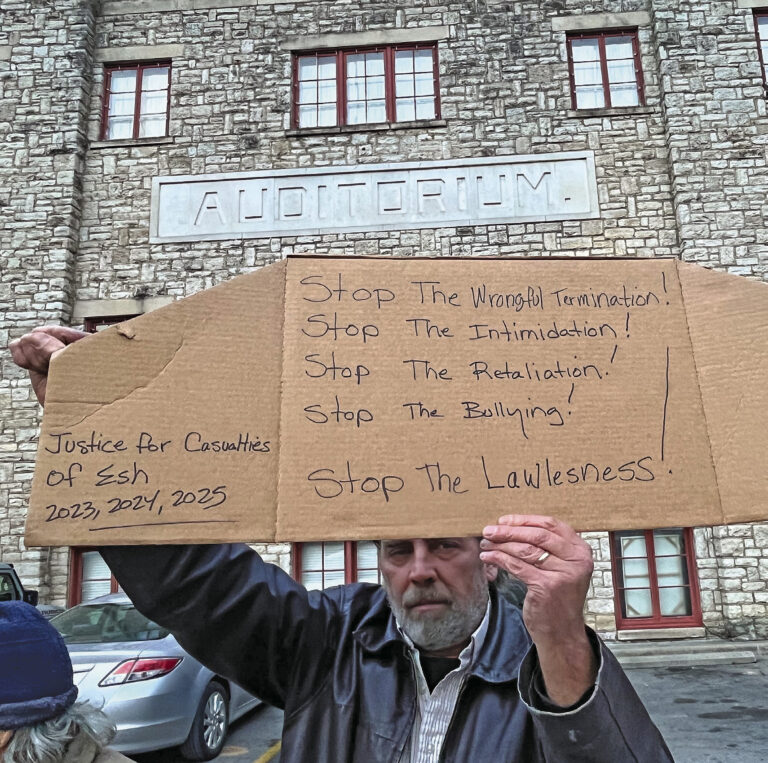 AUDITORIUM.
Stop The Wrongful Termination!
Stop The Intimidation!
Stop The Retaliation!
Stop The Bullying!
Stop The Lawlesness!
Justice for Casualties
of Esh
2023, 2024, 2025